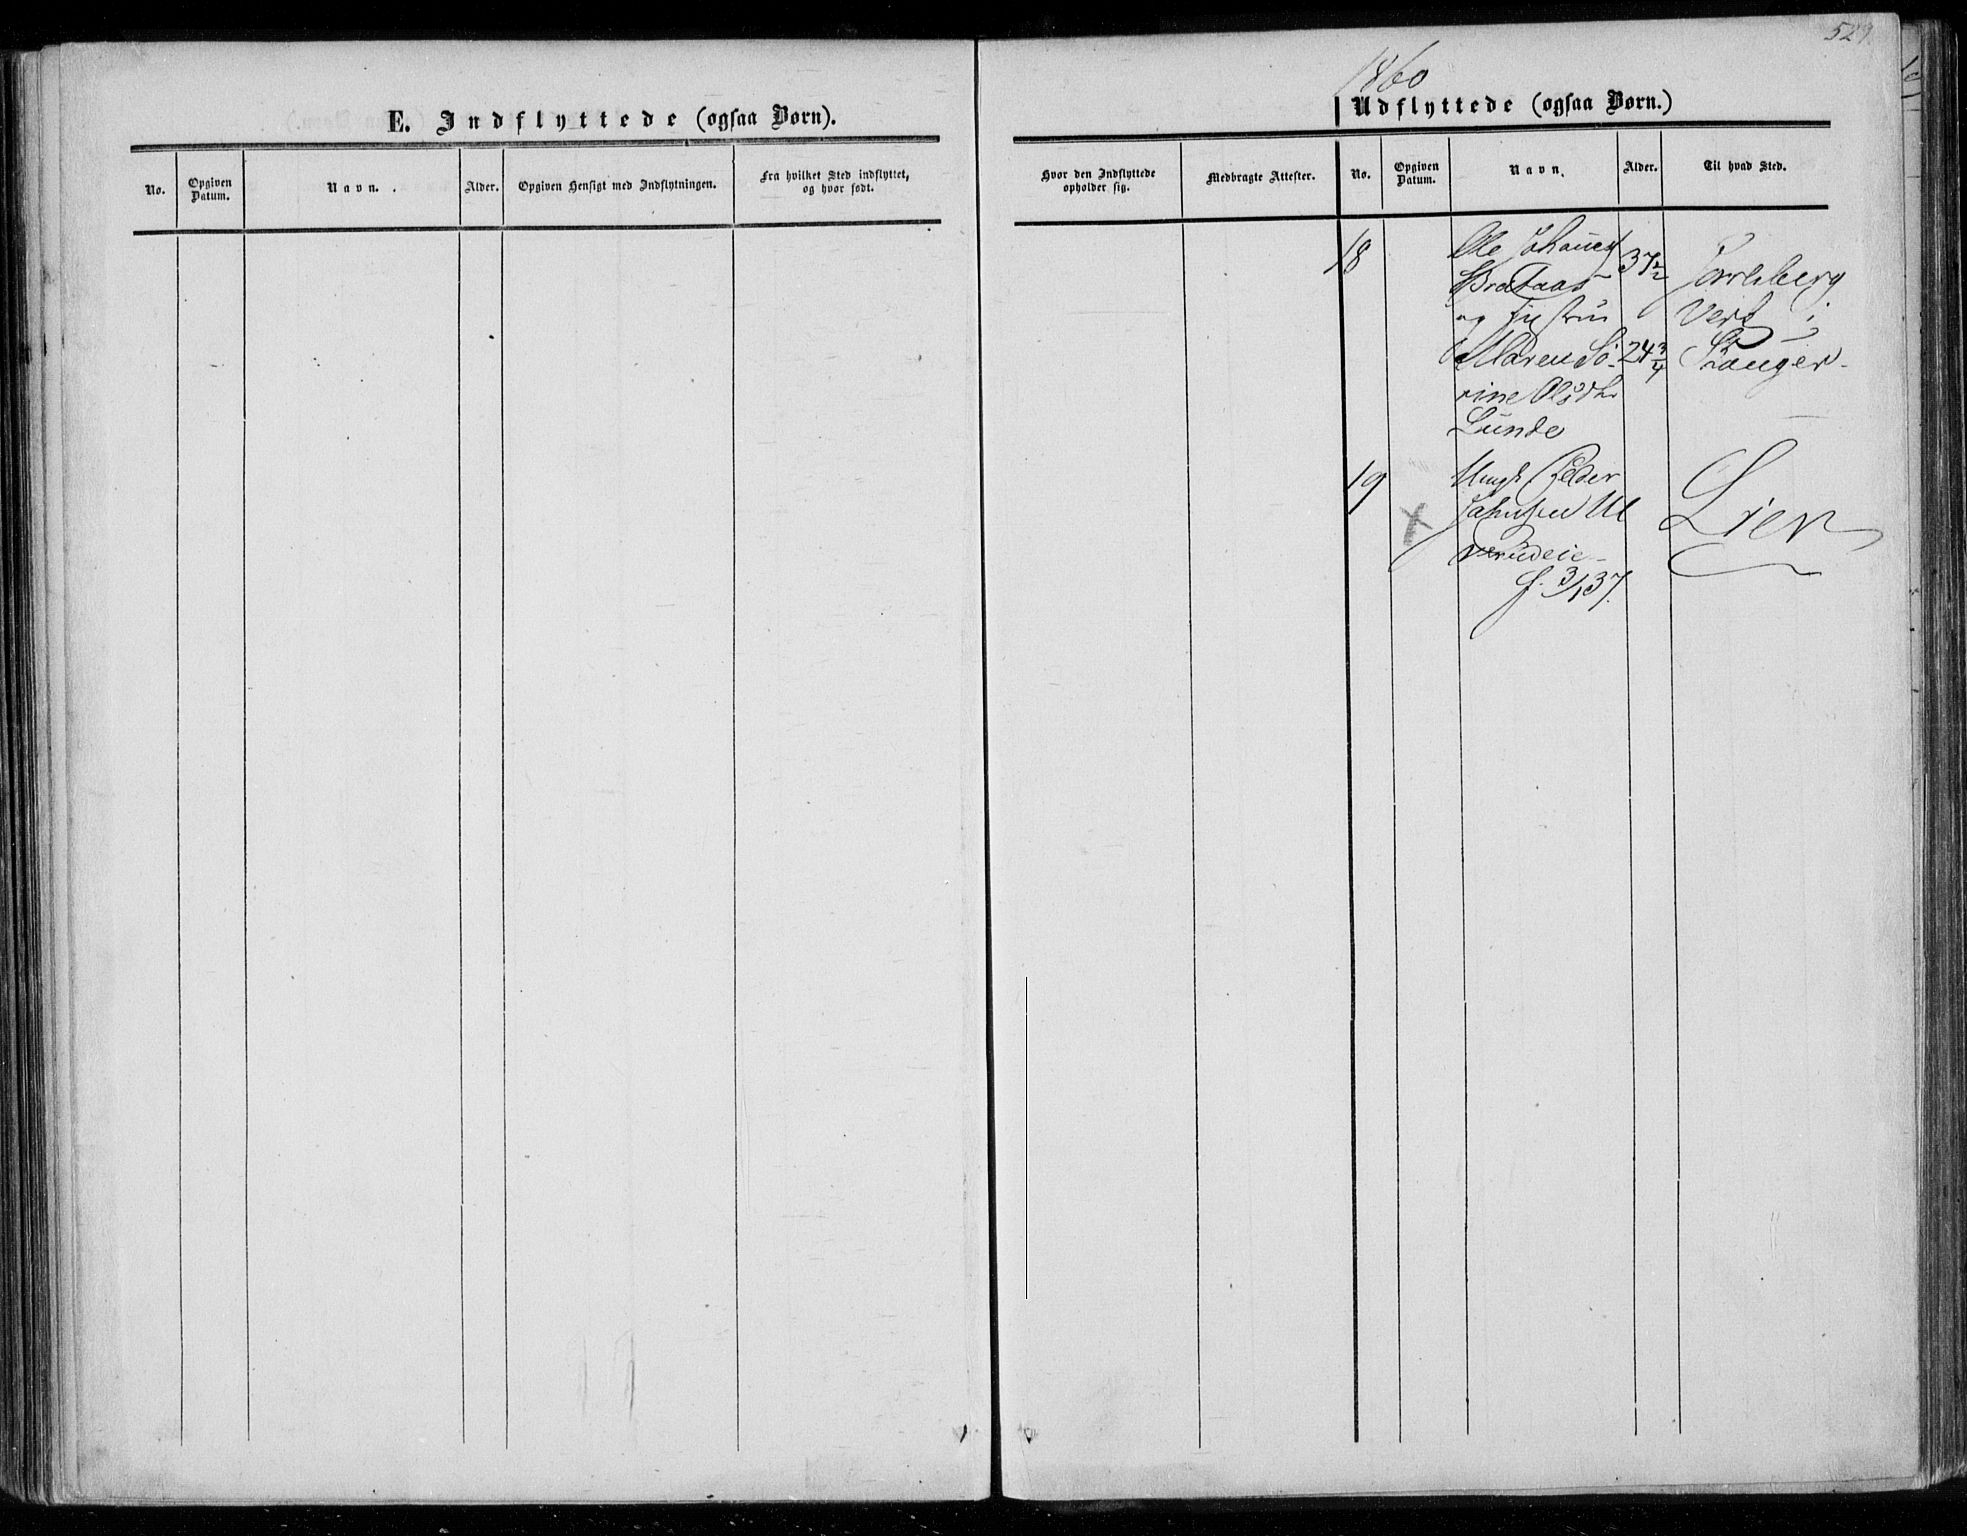 529.
1860
E. Indflyttede (ogsaa Børn).
Udflyttede (ogsaa Børn.)
No.
Opgiven Datum.
Navn.
Alder.
Opgiven Hensigt med Indflytningen.
Fra hvilket Sted indflyttet, og hvor født.
Hvor den Indflyttede opholder sig.
Medbragte Attester.
No.
Opgiven Datum.
Navn.
Alder.
Til hvad Sted.
18
Ole Johannes
37½
Jarlsberg
Brataas
Verk i
og Hustru
Maren Sø-
24¾
rine Olsdtr
Lunde
19
Ungk. Peder
Lier
f. 3/1 37.